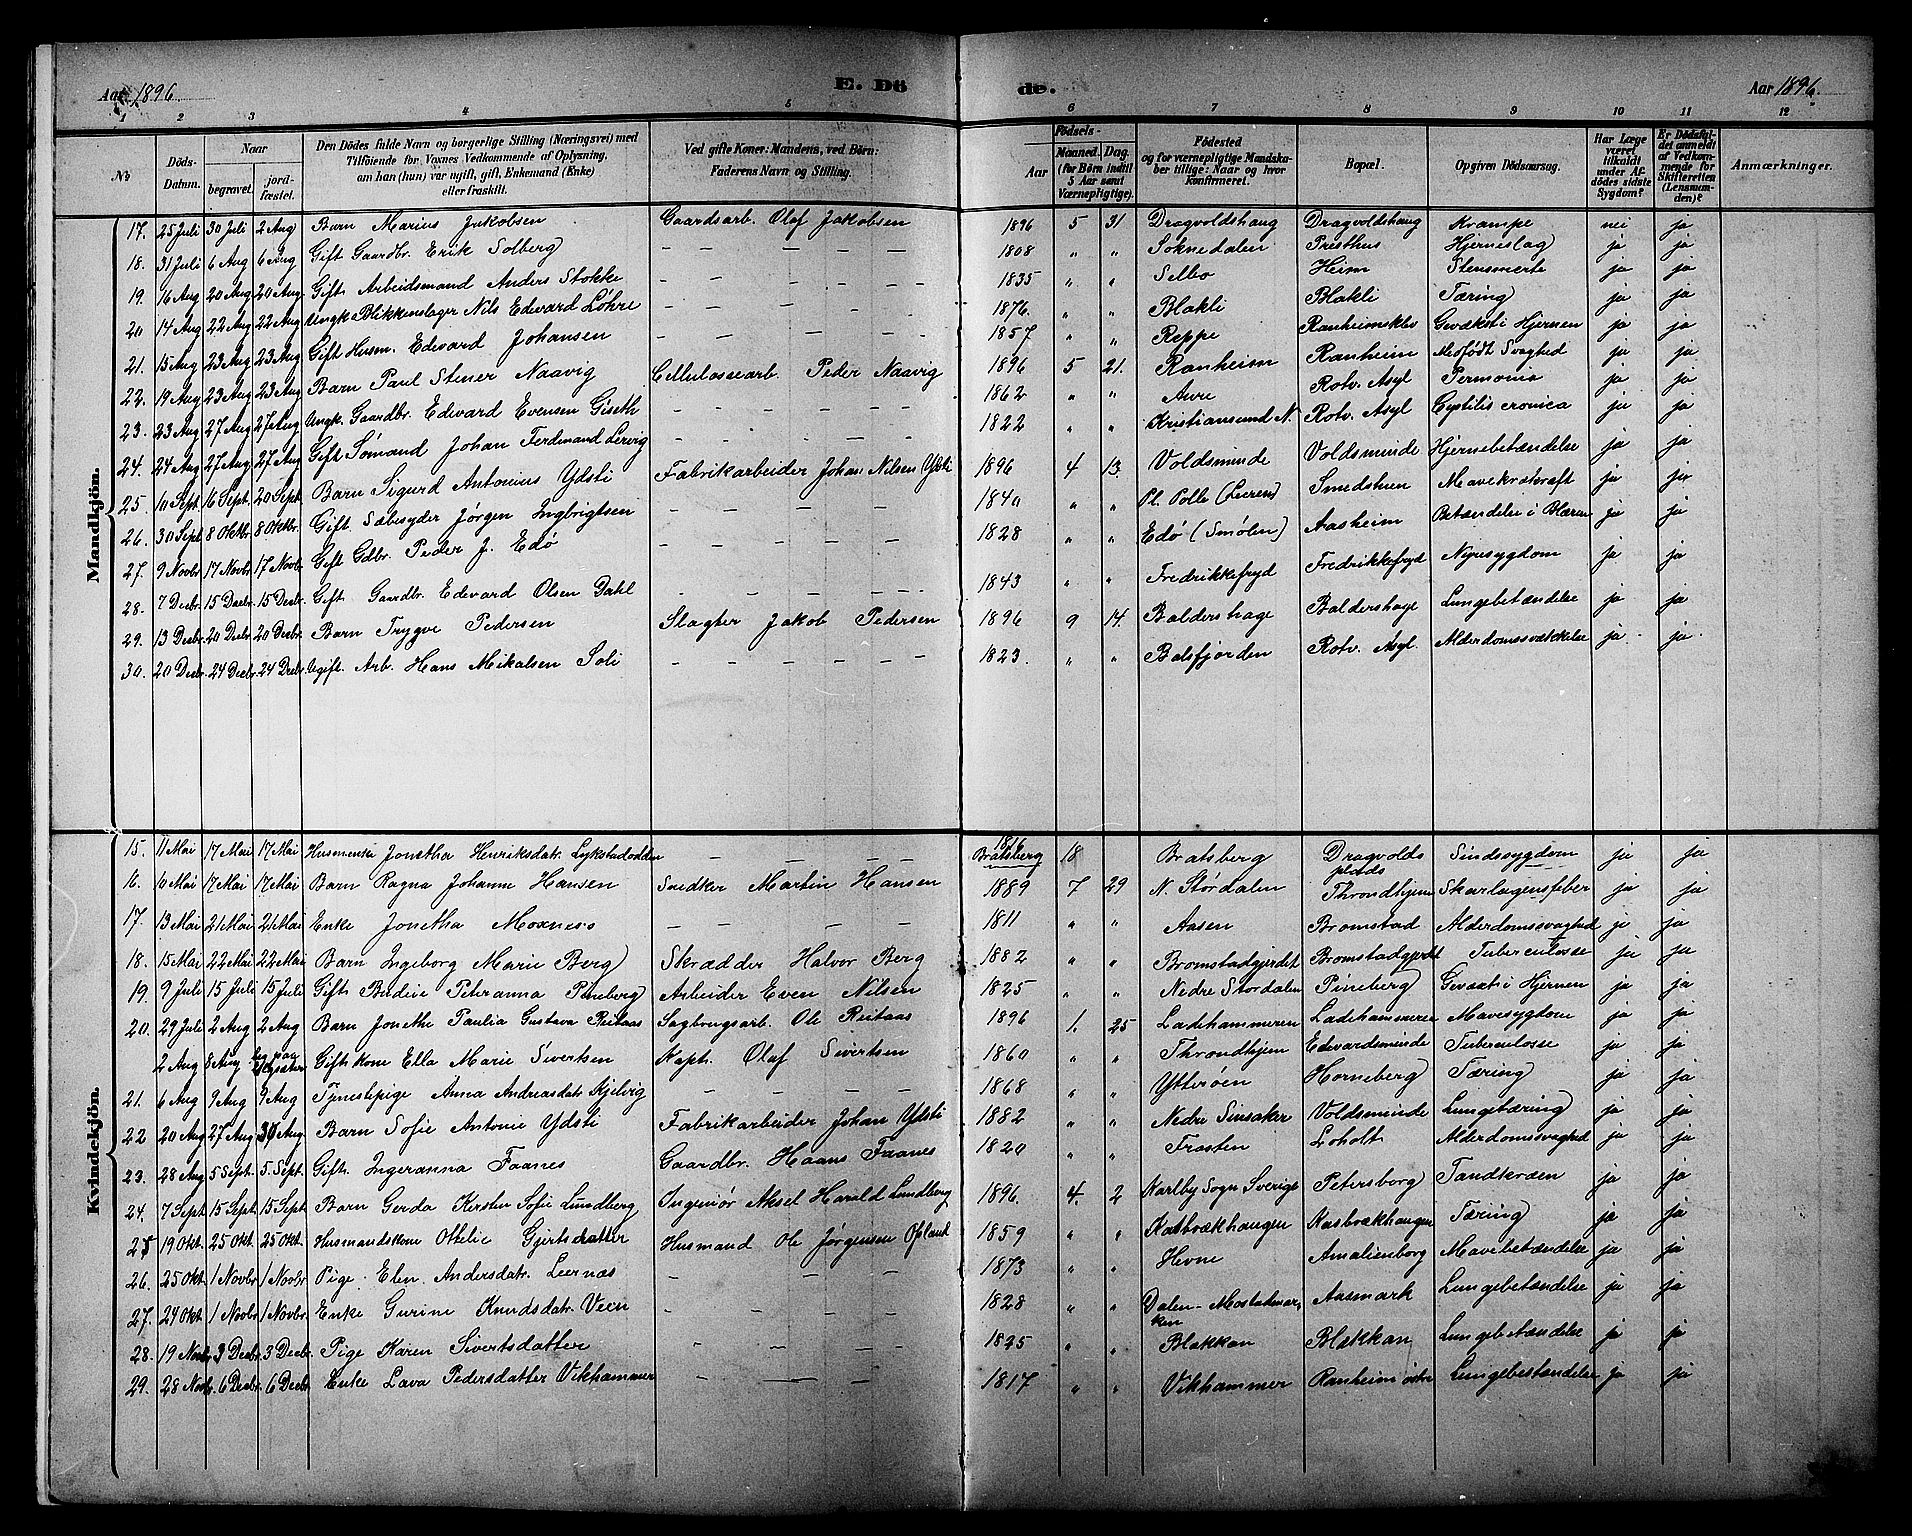 Aar 1896
E. Dö
de.
Aar 1896
1 2 3 4 5 6 7 8 9 10 11 12
No
Döds-Datum.
Naar
begravet.
jord-fæstet.
Den Dödes fulde Navn og borgerlige Stilling (Næringsvei) med
Tilföiende for Voxnes Vedkommende af Oplysning,
om han (hun) var ugift, gift, Enkemand (Enke)
eller fraskilt.
Ved gifte Koner: Mandens, ved Börn:
Faderens Navn og Stilling.
Födsels-
Aar
Maaned. Dag.
(for Börn indtil
5 Aar samt
Værnepligtige).
Födested
og for værnepligtige Mandska-
ber tillige: Naar og hvor
konfirmeret.
Bopæl.
Opgiven Dödsaarsag.
Har Læge
været
tilkaldt
under Af-
dödes sidste
Sygdom?
Er Dödsfal-
det anmeldt
af Vedkom-
mende for
Skifteretten
(Lensman-
den)?
Anmærkninger.
Mandkjön.
17. 25 Juli 30 Juli 2 Aug Barn Marius Jakobsen Gaardsarb. Olaf Jakobsen 1896 5 31 Dragvoldshaug Dragvoldshaug Krampe nei ja
18. 31 Juli 6 Aug 6 Aug Gift Gaardbr. Erik Solberg — — — — 1808 " " Soknedalen Presthus Hjerneslag ja ja
19. 16 Aug 20 Aug 20 Aug Gift Arbeidsmand Anders Stokke — — — — 1835 " " Selbo Heim Stensmerte ja ja
20 14 Aug 22 Aug 22 Aug Ungk. Blikkenslager Nils Edvard Löhre — — — — 1876. " " Blakli Blakli Tæring ja ja
21. 15 Aug 23 Aug 23 Aug Gift Husm. Edvard Johansen — — — — 1857 " " Reppe Ranheimskbv Gevækst i Hjernen ja ja
22. 19 Aug 23 Aug 23 Aug Barn Paul Stener Naavig Cellulossearb. Peder Naavig 1896 5 21. Ranheim Ranheim Medfödt Svaghed ja ja
23. 23 Aug 27 Aug 27 Aug Ungk. Gaardbr. Edvard Evensen Giseth — — — — 1862 " " Aure Rotv. Asyl ja ja
24. 24 Aug 27 Aug 27 Aug Gift Sömand Johan Ferdinand Lervig — — — — 1822 " " Kristiansund N. Rotv. Asyl Cystilis cronica ja ja
25. 10 Sept 16 Sept. 20 Sept. Barn Sigurd Antonius Ydsti Fabrikarbeider Johan Nilsen Ydsti 1896 4 13. Voldsminde Voldsminde Hjernebetændelse ja ja
26. 30 Sept 8 Oktbr 8 Oktbr. Gift Sæbesyder Jörgen Ingbrigtsen — — — — 1840 " " Pl. Polle (Leeren) Smedstuen Mavekræftkraft ja ja
27. 9 Novbr 17 Novbr 17 Novbr Gift Gdbr. Peder J. Edö — — — — 1828 " " Edö (Smölen) Aasheim Betændelse i Blæren ja ja
28. 7 Decbr 15 Decbr 15 Decbr. Gift Gaardbr. Edvard Olsen Dahl — — — — 1843 " " Fredrikkefryd Fredrikkefryd Nyresygdom ja ja
29. 13 Decbr 20 Decbr 20 Decbr. Barn Trygve Pedersen Slagter Jakob Pedersen 1896 9 14. Baldershage Baldershage Lungebetændelse ja ja
30. 20 Decbr 24 Decbr. 24 Decbr Ugift. Arb. Hans Mikalsen Soli — — — — 1823. " " Balsfjorden Rotv. Asyl. Alderdomssvækkelse ja. ja.
Kvindekjön.
15. 11 Mai 17 Mai 17 Mai Husmenske Jonetha Henriksdatr. Lykstadodden — — — 1826 Bratsberg 18 Bratsberg Dragvolds plads Sindssygdom ja ja
16. 10 Mai 17 Mai 17 Mai Barn Ragna Johanne Hansen Snedker Martin Hansen 1889 7 29 N. Stördalen Throndhjem Skarlagensfeber ja ja
17. 13 Mai 21 Mai 21 Mai Enke Jonetha Moxness — — — — 1811 " " Aasen Bromstad Alderdomssvaghed ja ja
18. 15 Mai 22 Mai 22 Mai Barn Ingeborg Marie Berg Skrædder Halvor Berg 1882 " " Bromstadgjerdet Bromstadgjerdet Tuberculosse ja ja
19. 9 Juli 15 Juli 15 Juli Gift. Peteranna Pineberg Arbeider Even Nilsen 1825 " " Nedre Stördalen Pineberg Gevæxt i Hjernen ja ja
20. 29 Juli 2 Aug 2 Aug Barn Jonetha Paulia Gustava Reitaas Sagbrugsarb. Ole Reitaas 1896 1. 25 Ladehammeren Ladehammeren Mavesygdom ja ja
2 Aug 8 Aug Gift kone Ella Marie Sivertsen Kapt. Olaf Sivertsen 1860 " " Throndhjem Edvardsminde Tuberculosse ja ja
21. 6 Aug 9 Aug 9 Aug Tjenestepige Anna Andreasdatr Kjelvig — — — — 1868 " " Ytteröen Horneberg Tæring ja ja
22 20 Aug 27 Aug 30 Aug Barn Sofie Antonie Ydsti Fabrikarbeider Johan Ydsti 1882 " " Nedre Sinsaker Voldsminde Lungetæring ja ja
23. 28 Aug 5 Sept. 5. Sept. Gift. Ingeranna Faanes Gaardbr. Haans Faanes 1820 " " Frosten Loholt Alderdomssvaghed ja ja
24. 7 Sept 15 Sept 15 Sept. Barn Gerda Kersten Sofie Lundberg Ingeniör Aksel Harald Lundberg 1896. 4. 2 Karlby Sogn Sverige Petersborg Tandkræen ja ja
25 19 Okt 25 Okt 25 Okt. Husmandskone Ottelie Gjertsdatter Husmand Ole Jörgensen Opland 1859 " " Kasbrækhaugen Kasbrækhaugen Tæring ja ja
26. 25 Okt 1 Novbr 1 Novbr Pige. Elen. Andersdatr. Leernæs — — — — 1873 " " Hevne Amalienborg Mavebetændelse ja ja
27. 24 Okt 1 Novbr 1 Novbr. Enke Gurine Knudsdatr. Veen — — — — 1828 " " Dalen - Mostadmarken Aasmark Lungebetændelse ja ja
28. 19 Novbr 3 Decbr 3 Decbr. Pige Karen Sivertsdatter — — — — 1825 " " Blækkan Blækkan Lungebetændelse ja ja
29. 28 Novbr. 6 Decbr 6 Decbr Enke Lava Pedersdatter Vikhammer — — — 1817 " " Vikhammer Ranheim östre Lungebetændelse ja ja